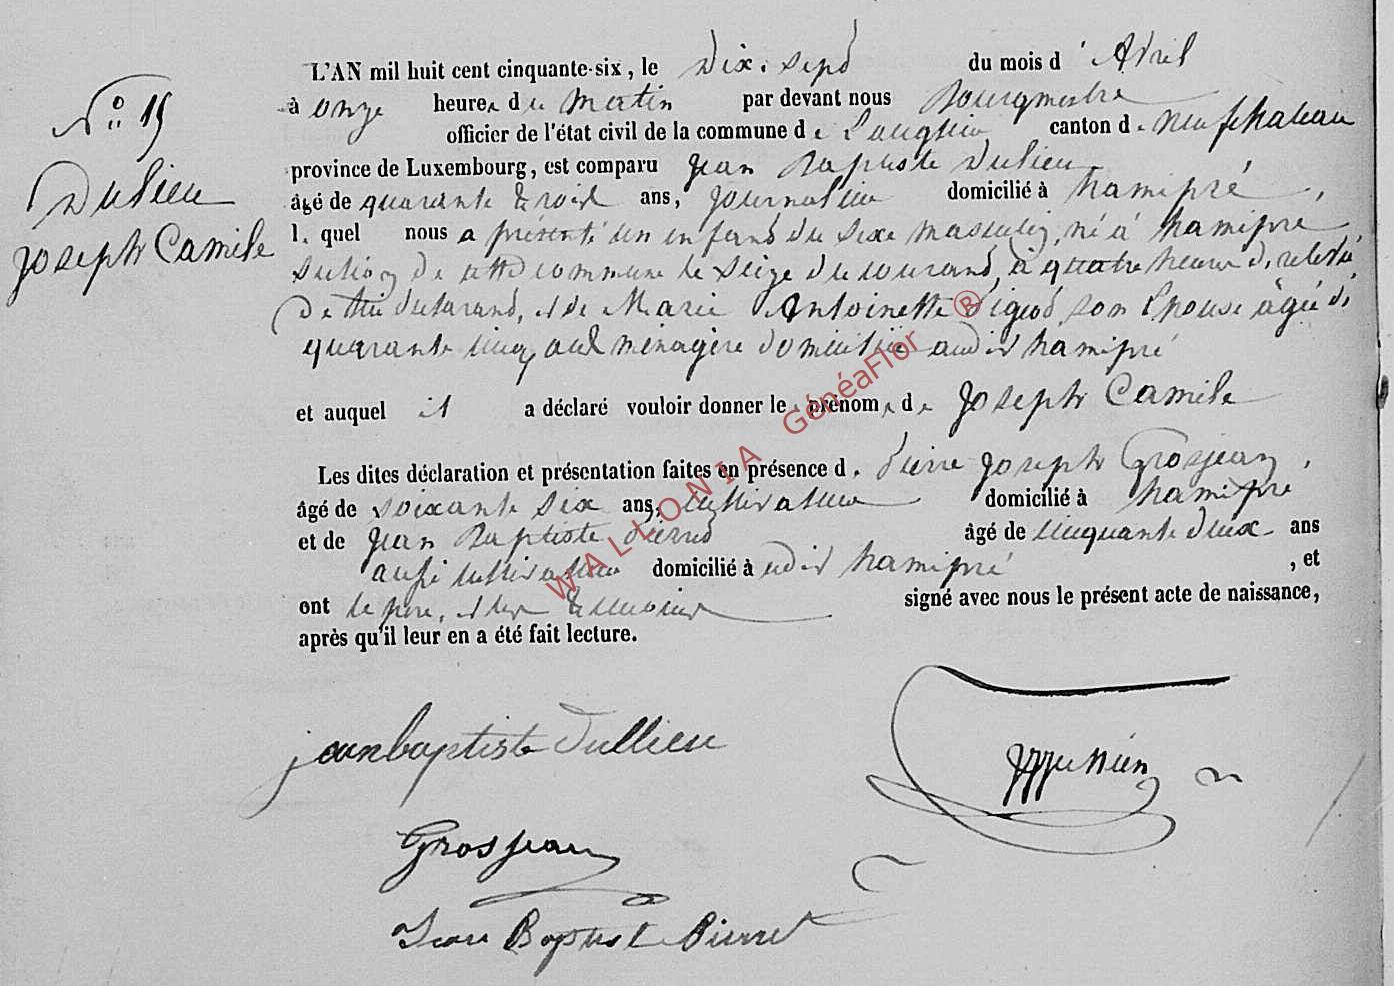 N° 15
Dulieu
Joseph Camile
L'AN mil huit cent cinquante-six, le dix-sept du mois d'Avril
à onze heures du matin par devant nous Bourgmestre
officier de l'état civil de la commune de canton de Neufchateau
province de Luxembourg, est comparu Jean Baptiste Dulieu
âgé de quarante trois ans, journalier domicilié à hamipré,
lequel nous a présenté un enfant du sexe masculin, né à hamipré
section de cette commune le seize du courant, à quatre heures de
déclarant, et de Marie Antoinette son Epouse âgée de
quarante cinq ans ménagère domiciliée audit hamipré
et auquel il a déclaré vouloir donner le prénom de Joseph Camile
Les dites déclaration et présentation faites en présence de Pierre Joseph Grosjean,
âgé de soixante six ans, cultivateur domicilié à hamipré
et de Jean Baptiste Pierret âgé de cinquante deux ans
aussi cultivateur domicilié à udit hamipré, et
ont le père, et les témoins signé avec nous le présent acte de naissance,
après qu'il leur en a été fait lecture.
jeanbaptiste dullieu
Grosjean
Jean Baptist Pierret
WALLONIA GénéaFlor ®